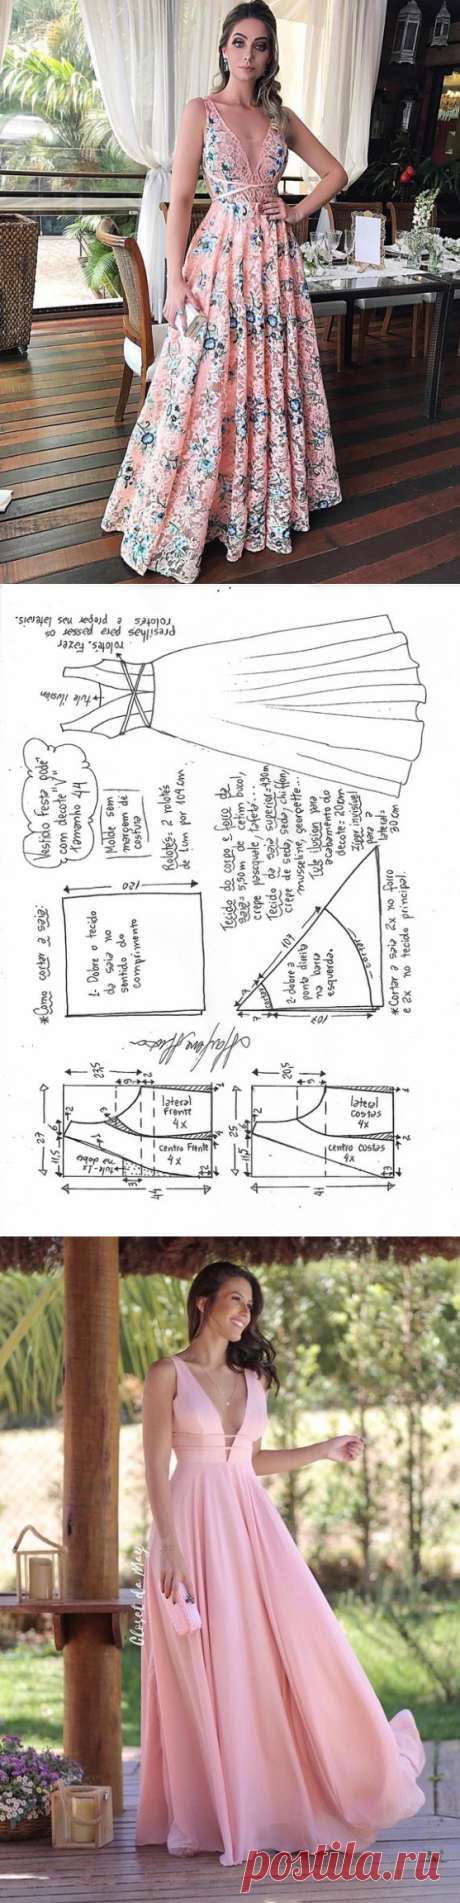 rolotês. Fazer
presilhas para passar os
rolotês e pregar nas laterais.
tule ilusion
Vestido Festa godê
com decote "V"
Tamanho 44
Molde sem
margem de
costura
Rolotês: 2 rolotês
de 1cm por 109cm
Tecido do corpo e forro da
saia= 5,50m de cetim bucol,
crepe pasquale, tafetá...
Tecido da saia superior=4,90m
crepe de seda, seda, chiffon,
musseline, georgette...
Tule ilusion para
acabamento do
decote= 20cm
Zíper invisível
para a
lateral=
30cm
*Como cortar a saia:
120
1- Dobre o tecido
da saia no
sentido do
comprimento
107
cortar
cortar
7
7
107
2- dobre a
ponta direita
na barra
esquerda.
*Cortar a saia 2x no forro
e 2x no tecido principal.
22,5
9
2
27
11,5
6
2
lateral
Frente
4x
centro Frente
4x
tule-1x
na dobra
3
2
1
44
20,5
9
25
11,5
6
2
lateral
costas
4x
centro costas
4x
3
1
41
Closet da May
postila.ru